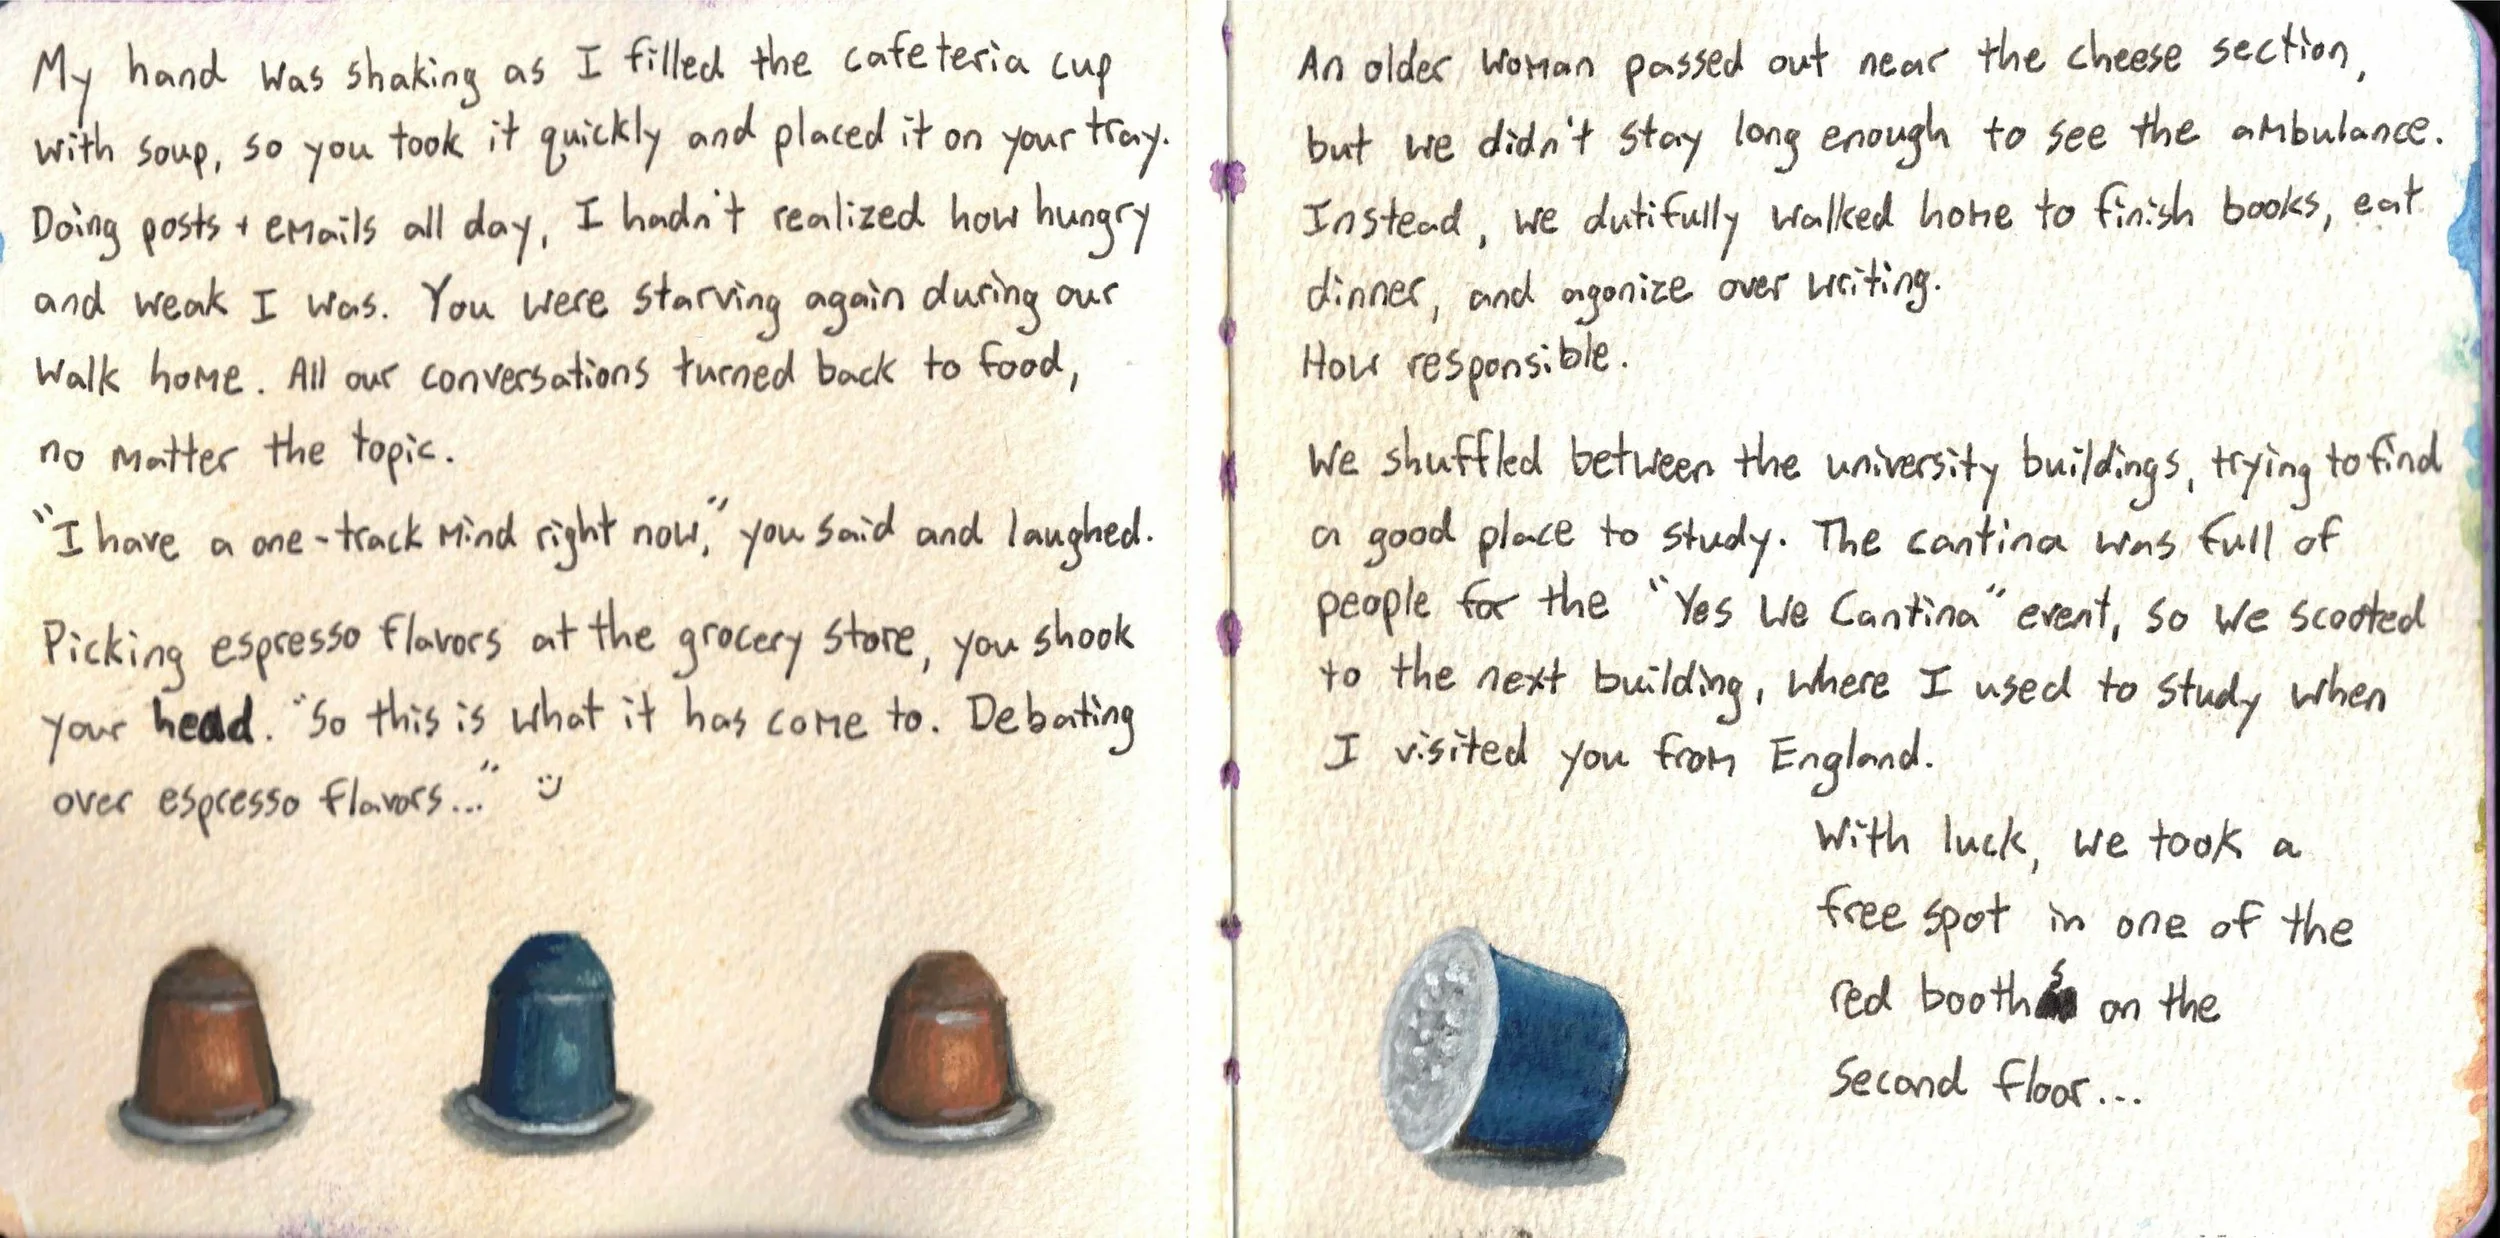 My hand was shaking as I filled the cafeteria cup
with soup, so you took it quickly and placed it on your tray.
Doing posts + emails all day, I hadn't realized how hungry
and weak I was. You were starving again during our
walk home. All our conversations turned back to food,
no matter the topic.
"I have a one-track mind right now," you said and laughed.
Picking espresso flavors at the grocery store, you shook
your head. "So this is what it has come to. Debating
over espresso flavors..." :)
An older woman passed out near the cheese section,
but we didn't stay long enough to see the ambulance.
Instead, we dutifully walked home to finish books, eat
dinner, and agonize over writing.
How responsible.
We shuffled between the university buildings, trying to find
a good place to study. The cantina was full of
people for the "Yes We Cantina" event, so we scooted
to the next building, where I used to study when
I visited you from England.
With luck, we took a
free spot in one of the
red booths on the
second floor...